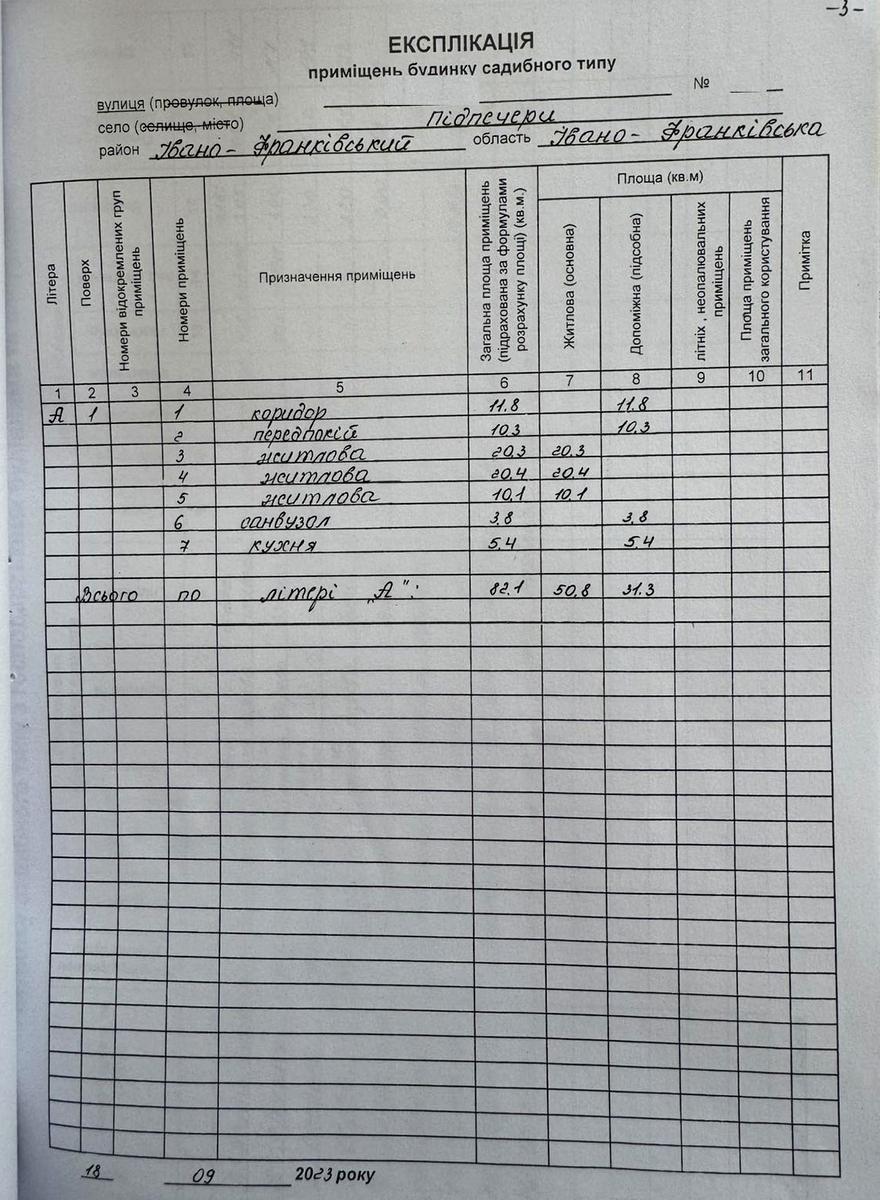 -3-
ЕКСПЛІКАЦІЯ
приміщень будинку садибного типу
вулиця (провулок, площа) №
село (селище, місто) Підпечери
район Івано-Франківський область Івано-Франківська
Літера
Поверх
Номери відокремлених груп приміщень
Номери приміщень
Призначення приміщень
Загальна площа приміщень (підрахована за формулами розрахунку площі) (кв.м.)
Площа (кв.м)
Житлова (основна)
Допоміжна (підсобна)
літніх , неопалювальних приміщень
Площа приміщень загального користування
Примітка
1 2 3 4 5 6 7 8 9 10 11
А 1 1 коридор 11.8 11.8
2 передпокій 10.3 10.3
3 житлова 20.3 20.3
4 житлова 20.4 20.4
5 житлова 10.1 10.1
6 санвузол 3.8 3.8
7 кухня 5.4 5.4
Всього по літері „А": 82.1 50.8 31.3
18 09 2023 року